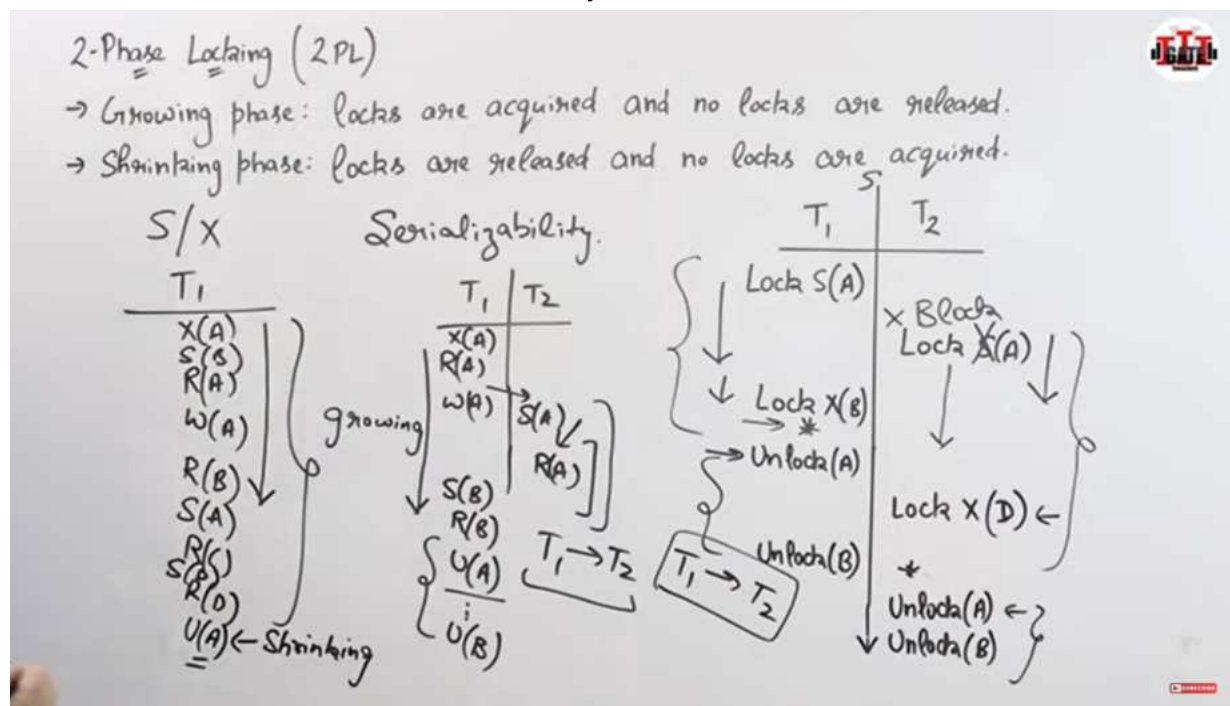 2-Phase Locking (2PL)
→ Growing phase: locks are acquired and no locks are released.
→ Shrinking phase: locks are released and no locks are acquired.
S/X
T₁
X(A)
S(B)
R(A)
W(A)
R(B)
S(A)
R(C)
R(D)
U(A) ← Shrinking
growing
Serializability.
T₁ | T₂
X(A)
R(A)
W(A) → S(A)
R(A)
S(B)
R(B)
U(A)
U(B)
T₁ → T₂
S₁
T₁ | T₂
Lock S(A)
X Block
Lock X(A)
Lock X(B)
→ *
→ Unlock(A)
Lock X(D) ←
Unlock(B)
*
T₁ → T₂
Unlock(A) ←
Unlock(B)
GATE
SUBSCRIBE